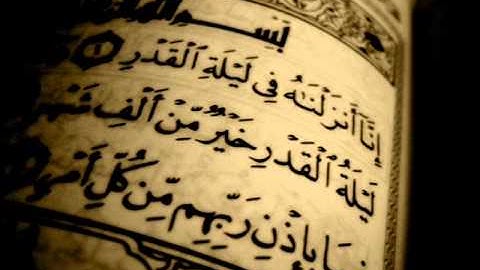 بِسْمِ
إِنَّآ أَنزَلْنَٰهُ فِى لَيْلَةِ ٱلْقَدْرِ ١
لَيْلَةُ ٱلْقَدْرِ خَيْرٌ مِّنْ أَلْفِ
بِإِذْنِ رَبِّهِم مِّن كُلِّ